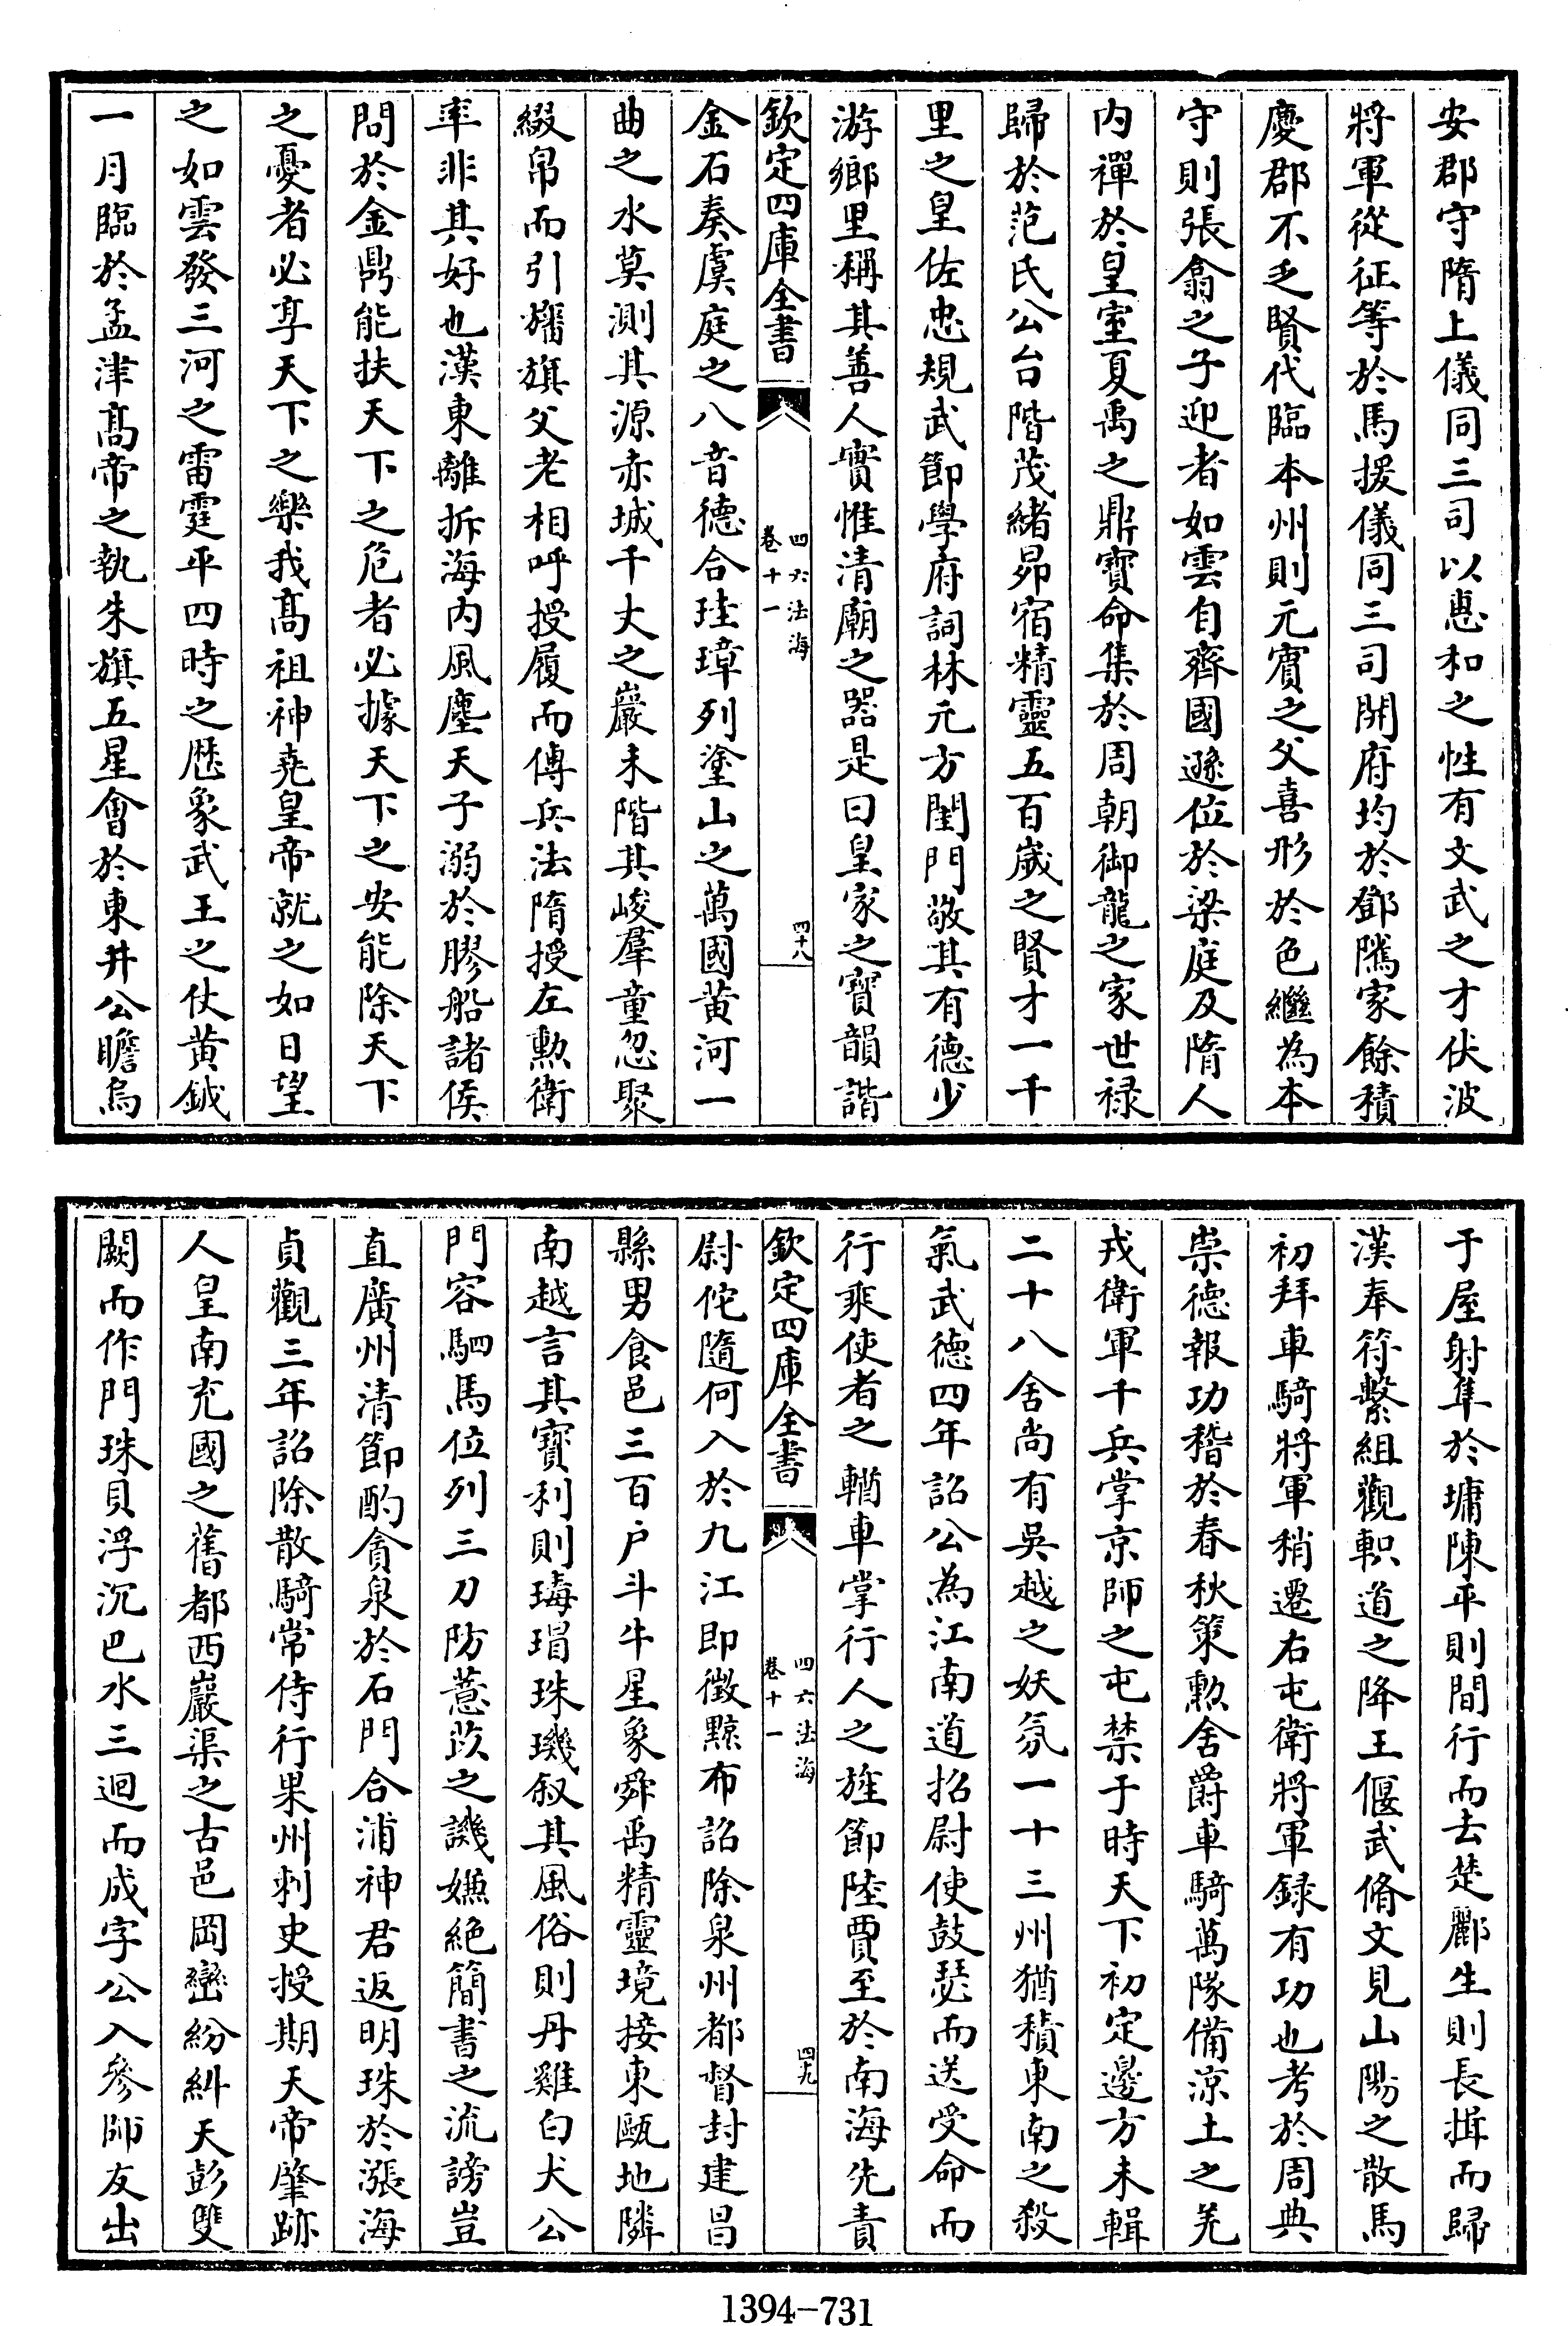 安郡守隋上儀同三司以惠和之性有文武之才伏波
將軍從征等於馬援儀同三司開府均於鄧隲家餘積
慶郡不乏賢代臨本州則元賓之父喜形於色繼為本
守則張翕之子迎者如雲自齊國遜位於梁庭及隋人
内禪於皇室夏禹之鼎寳命集於周朝御龍之家世禄
歸於范氏公台階茂緒昴宿精靈五百歲之賢才一千
里之皇佐忠規武節學府詞林元方閨門敬其有德少
游鄉里稱其善人實惟清廟之器是曰皇家之寳韻諧
欽定四庫全書
四六法海
卷十一
四十八
金石奏虞庭之八音德合珪璋列塗山之萬國黄河一
曲之水莫測其源赤城千丈之巖未階其峻羣童忽聚
綴帛而引旛旗父老相呼授履而傳兵法隋授左勲衛
率非其好也漢東離拆海内風塵天子溺於膠船諸侯
問於金鼎能扶天下之危者必據天下之安能除天下
之憂者必享天下之樂我髙祖神堯皇帝就之如日望
之如雲發三河之雷霆平四時之厯象武王之仗黄鉞
一月臨於孟津髙帝之執朱旗五星會於東井公瞻烏
于屋射隼於墉陳平則間行而去楚酈生則長揖而歸
漢奉符繫組觀軹道之降王偃武脩文見山陽之散馬
初拜車騎將軍稍遷右屯衛將軍録有功也考於周典
崇德報功稽於春秋策勲舍爵車騎萬隊備涼土之羌
戎衛軍千兵掌京師之屯禁于時天下初定邊方未輯
二十八舍尚有吳越之妖氛一十三州猶積東南之殺
氣武德四年詔公為江南道招尉使鼓瑟而送受命而
行乘使者之輶車掌行人之旌節陸賈至於南海先責
欽定四庫全書
四六法海
卷十一
四十九
尉佗隨何入於九江即徵黥布詔除泉州都督封建昌
縣男食邑三百户斗牛星象舜禹精靈境接東甌地隣
南越言其寳利則瑇瑁珠璣叙其風俗則丹雞白犬公
門容駟馬位列三刀防薏苡之譏嫌絶簡書之流謗豈
直廣州清節酌貪泉於石門合浦神君返明珠於漲海
貞觀三年詔除散騎常侍行果州刺史授期天帝肇跡
人皇南充國之舊都西巖渠之古邑岡巒紛糾天彭雙
闕而作門珠貝浮沉巴水三迴而成字公入參師友出
1394-731